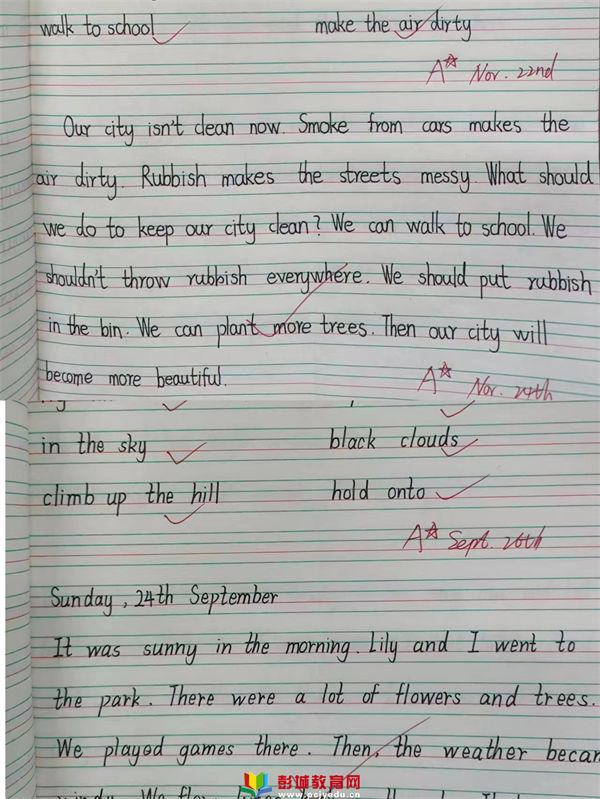 walk to school make the air dirty
A☆ Nov. 22nd
Our city isn't clean now. Smoke from cars makes the
air dirty. Rubbish makes the streets messy. What should
we do to keep our city clean? We can walk to school. We
shouldn't throw rubbish everywhere. We should put rubbish
in the bin. We can plant more trees. Then our city will
become more beautiful.
A☆ Nov. 24th
in the sky black clouds
climb up the hill hold onto
A☆ Sept. 26th
Sunday, 24th September
It was sunny in the morning. Lily and I went to
the park. There were a lot of flowers and trees.
We played games there. Then, the weather becam
windy. We flew
彭城教育网
www.pcjyedu.cn